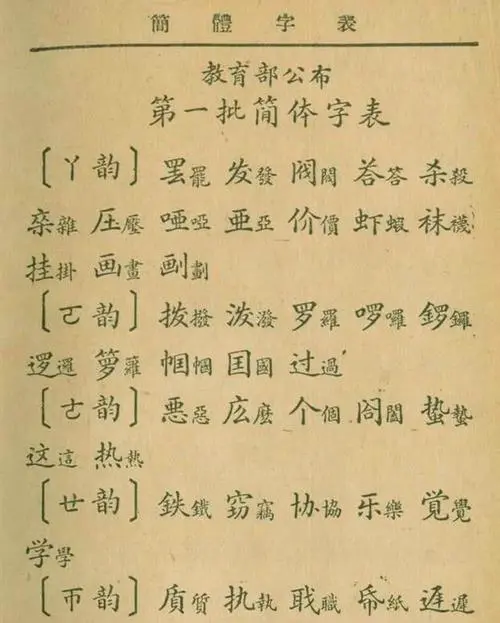 簡體字表
教育部公布
第一批简体字表
〔ㄚ韵〕 罢罷 发發 阀閥 荅答 杀殺
杂雜 压壓 哑啞 亜亞 价價 虾蝦 袜襪
挂掛 画畫 劃
〔ㄛ韵〕 拨撥 泼潑 罗羅 啰囉 锣鑼
逻邏 箩籮 帼幗 国國 过過
〔ㄜ韵〕 恶惡 庅麼 个個 阁閤 蛰蟄
这這 热熱
〔ㄝ韵〕 鉄鐵 窃竊 协協 乐樂 覚覺
学學
〔ㄭ韵〕 质質 执執 职職 帋紙 迟遲